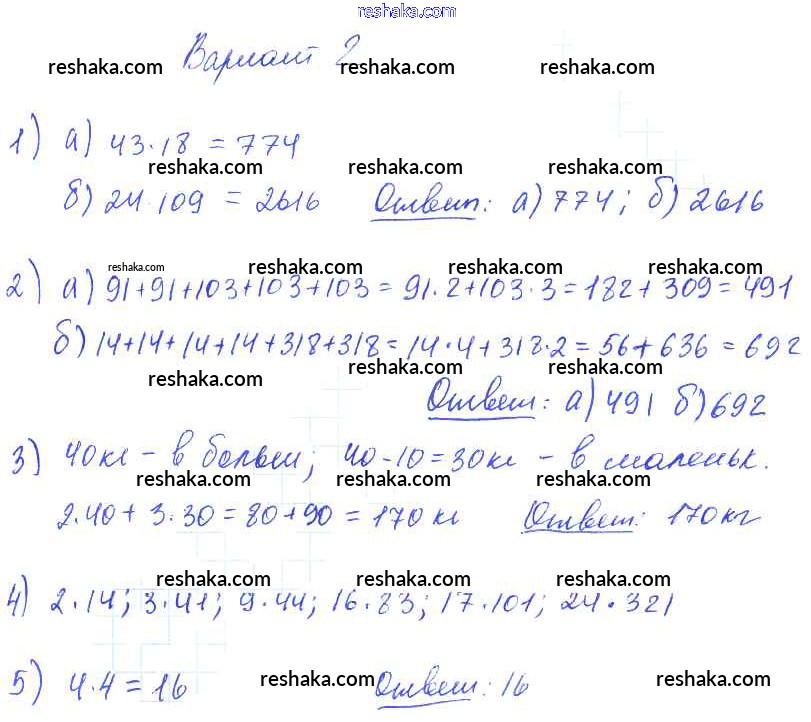 reshaka.com
Вариант 2
reshaka.com reshaka.com reshaka.com
1) а) 43·18 = 774
reshaka.com reshaka.com reshaka.com
б) 24·109 = 2616 Ответ: а) 774; б) 2616
reshaka.com reshaka.com reshaka.com reshaka.com
2) а) 91+91+103+103+103 = 91·2+103·3 = 182+309 = 491
б) 14+14+14+14+318+318 = 14·4+318·2 = 56+636 = 692
reshaka.com reshaka.com reshaka.com
Ответ: а) 491 б) 692
3) 40кг - в больш; 40-10=30кг - в маленьк.
reshaka.com reshaka.com reshaka.com
2·40+3·30=80+90=170кг Ответ: 170кг
reshaka.com reshaka.com reshaka.com
4) 2·14; 3·41; 9·44; 16·83; 17·101; 24·321
reshaka.com reshaka.com reshaka.com
5) 4·4=16 Ответ: 16